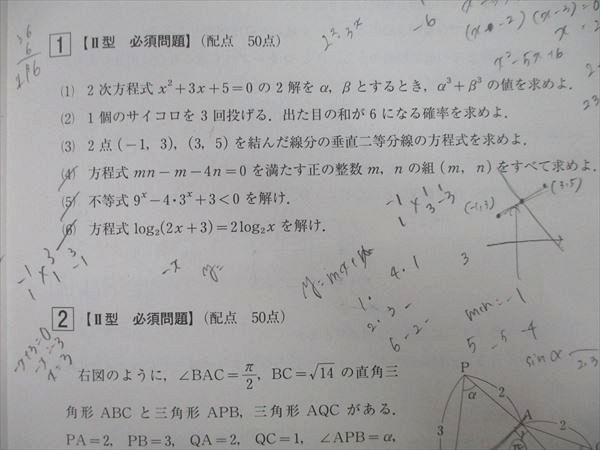 1 【Ⅱ型 必須問題】(配点 50点)
(1) 2次方程式 x²+3x+5=0 の2解を α, β とするとき, α³+β³ の値を求めよ.
(2) 1個のサイコロを3回投げる. 出た目の和が6になる確率を求めよ.
(3) 2点(-1, 3), (3, 5)を結んだ線分の垂直二等分線の方程式を求めよ.
(4) 方程式 mn-m-4n=0 を満たす正の整数 m, n の組(m, n)をすべて求めよ.
(5) 不等式 9ˣ-4・3ˣ+3<0 を解け.
(6) 方程式 log₂(2x+3)=2log₂x を解け.
36
6
216
-6
x²-5x+6
(-1,3)
(3,5)
-1 3
1 1 -1
-x y=
4・1 3
1・
2・3-
6-2-
5 -5 -4
x=3
sin α
2 【Ⅱ型 必須問題】(配点 50点)
右図のように, ∠BAC=π/2, BC=√14 の直角三
角形 ABC と三角形 APB, 三角形 AQC がある.
PA=2, PB=3, QA=2, QC=1, ∠APB=α,
P
α
2
A
2
3